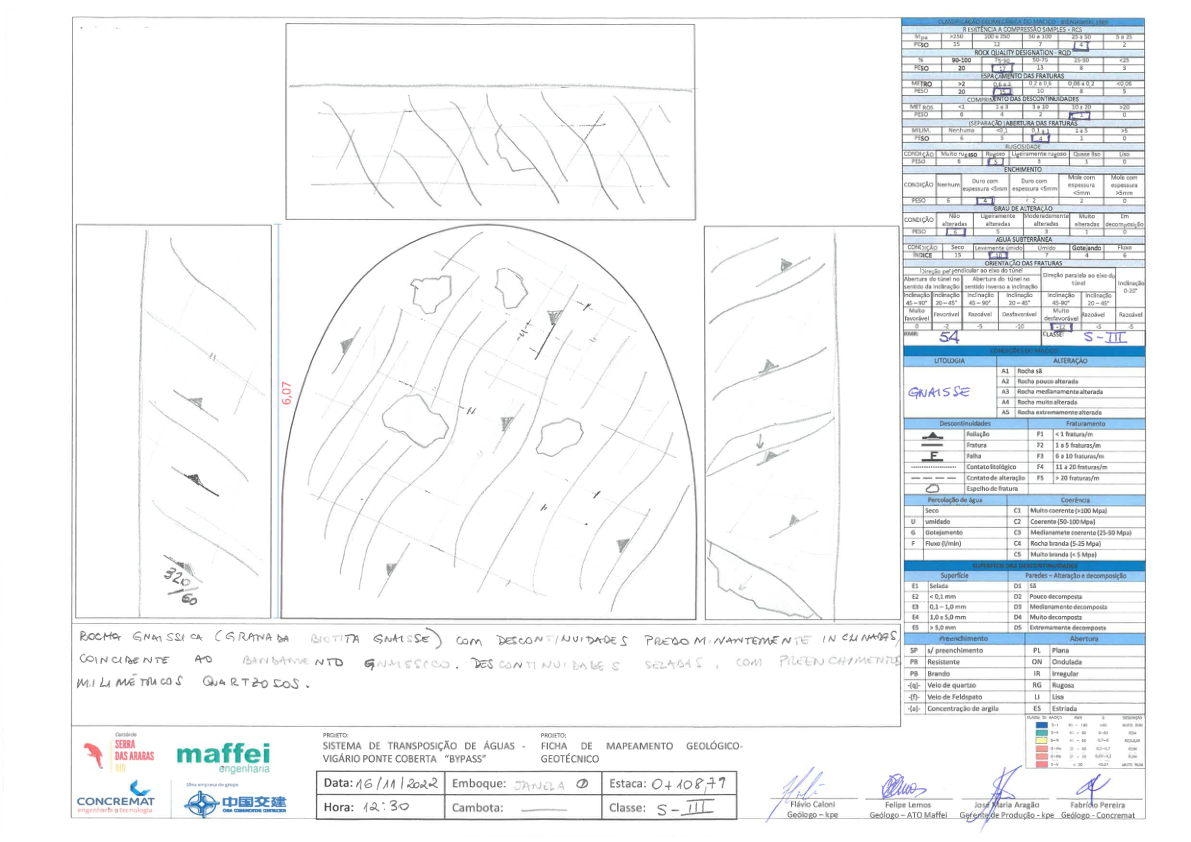 CLASSIFICAÇÃO GEOMECÂNICA DO MACIÇO - BIENIAWSKI 1989
RESISTÊNCIA A COMPRESSÃO SIMPLES - RCS
Mpa >250 100 a 250 50 a 100 25 a 50 5 a 25
PESO 15 12 7 4 2
ROCK QUALITY DESIGNATION - RQD
% 90-100 75-90 50-75 25-50 <25
PESO 20 17 13 8 3
ESPAÇAMENTO DAS FRATURAS
METRO >2 0,6 a 2 0,2 a 0,6 0,06 a 0,2 <0,06
PESO 20 15 10 8 5
COMPRIMENTO DAS DESCONTINUIDADES
METROS <1 1 a 3 3 a 10 10 a 20 >20
PESO 6 4 2 1 0
(SEPARAÇÃO) ABERTURA DAS FRATURAS
MILIM. Nenhuma <0,1 0,1 a 1 1 a 5 >5
PESO 6 5 4 1 0
RUGOSIDADE
CONDIÇÃO Muito rugoso Rugoso Ligeiramente rugoso Quase liso Liso
PESO 6 5 3 1 0
ENCHIMENTO
CONDIÇÃO Nenhum Duro com espessura <5mm Duro com espessura <5mm Mole com espessura <5mm Mole com espessura >5mm
PESO 6 4 < 2 2 0
GRAU DE ALTERAÇÃO
CONDIÇÃO Não alteradas Ligeiramente alteradas Moderadamente alteradas Muito alteradas Em decomposição
PESO 6 5 3 1 0
ÁGUA SUBTERRÂNEA
CONDIÇÃO Seco Levemente úmido Úmido Gotejando Fluxo
ÍNDICE 15 10 7 4 6
ORIENTAÇÃO DAS FRATURAS
Direção perpendicular ao eixo do túnel Direção paralela ao eixo do túnel Inclinação 0-20°
Abertura do túnel no sentido da inclinação Abertura do túnel no sentido inverso a inclinação
Inclinação 45 – 90° Inclinação 20 – 45° Inclinação 45 – 90° Inclinação 20 – 45° Inclinação 45-90° Inclinação 20 – 45°
Muito favorável Favorável Razoável Desfavorável Muito desfavorável Razoável Razoável
0 -2 -5 -10 -12 -5 -5
RMR: 54 CLASSE: S-III
LITOLOGIA ALTERAÇÃO
GNAISSE
A1 Rocha sã
A2 Rocha pouco alterada
A3 Rocha medianamente alterada
A4 Rocha muito alterada
A5 Rocha extremamente alterada
Descontinuidades Fraturamento
Foliação F1 < 1 fratura/m
Fratura F2 1 a 5 fraturas/m
F Falha F3 6 a 10 fraturas/m
Contato litológico F4 11 a 20 fraturas/m
Contato de alteração F5 > 20 fraturas/m
Espelho de fratura
Percolação de água Coerência
Seco C1 Muito coerente (>100 Mpa)
U umidado C2 Coerente (50-100 Mpa)
G Gotejamento C3 Medianamete coerente (25-50 Mpa)
F Fluxo (l/min) C4 Rocha branda (5-25 Mpa)
C5 Muito branda (< 5 Mpa)
SUPERFÍCIE DAS DESCONTINUIDADES
Superfície Paredes – Alteração e decomposição
E1 Selada D1 Sã
E2 < 0,1 mm D2 Pouco decomposta
E3 0,1 – 1,0 mm D3 Medianamente decomposta
E4 1,0 a 5,0 mm D4 Muito decomposta
E5 > 5,0 mm D5 Extremamente decomposta
Preenchimento Abertura
SP s/ preenchimento PL Plana
PR Resistente ON Ondulada
PB Brando IR Irregular
-(q)- Veio de quartzo RG Rugosa
-(f)- Veio de Feldspato LI Lisa
-(a)- Concentração de argila ES Estriada
6,07
320
60
ROCHA GNAISSICA (GRANADA BIOTITA GNAISSE) COM DESCONTINUIDADES PREDOMINANTEMENTE INCLINADAS,
COINCIDENTE AO BANDAMENTO GNAISSICO. DESCONTINUIDADES SELADAS, COM PREENCHIMENTOS
MILIMÉTRICOS QUARTZOSOS.
SERRA
DAS ARARAS
maffei
engenharia
CONCREMAT
engenharia e tecnologia
Uma empresa do grupo
中国交建
PROJETO:
SISTEMA DE TRANSPOSIÇÃO DE ÁGUAS -
VIGÁRIO/PONTE COBERTA "BYPASS"
PROJETO:
FICHA DE MAPEAMENTO GEOLÓGICO-
GEOTÉCNICO
Data: 16/11/2022 Emboque: JANELA Estaca: 0+108,79
Hora: 12:30 Cambota: Classe: S-III
Flávio Caloni
Geólogo – kpe
Felipe Lemos
Geólogo – ATO Maffei
José Maria Aragão
Gerente de Produção - kpe
Fabrício Pereira
Geólogo - Concremat